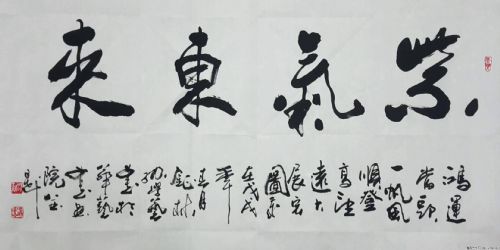 紫氣東來
鴻運
當頭
一帆風
順登
高望
遠大
展宏
圖
戊戌
年
春月
藝
書於
華藝
書画
院